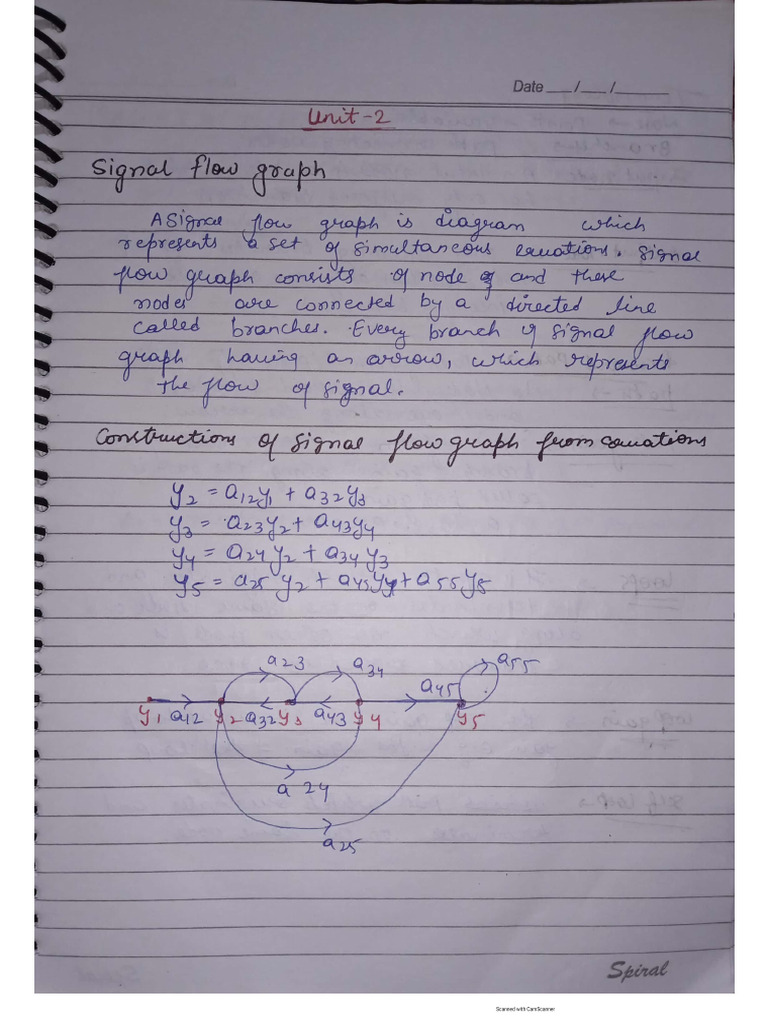 Date ___/___/______
Unit-2
Signal flow graph
A Signal flow graph is diagram which
represents a set of simultaneous equations. Signal
flow graph consists of node and these
nodes are connected by a directed line
called branches. Every branch of signal flow
graph having an arrow, which represents
the flow of signal.
Constructions of signal flow graph from equations
y2 = a12y1 + a32y3
y3 = a23y2 + a43y4
y4 = a24y2 + a34y3
y5 = a25y2 + a45y4 + a55y5
a23 a34 a55
a45
y1 a12 y2 a32 y3 a43 y4 y5
a 24
a25
Spiral
Scanned with CamScanner